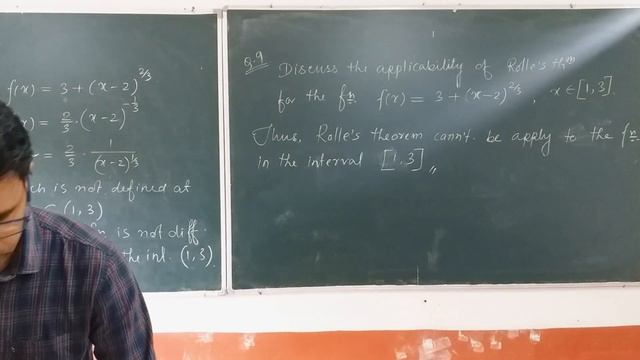 f(x) = 3 + (x-2)^{2/3}
) = 2/3 · (x-2)^{-1/3}
= 2/3 · 1/(x-2)^{1/3}
ch is not defined at
∈ (1,3)
is not diff.
the int. (1,3)
Q.9 Discuss the applicability of Rolle's thm
for the fn f(x) = 3 + (x-2)^{2/3}, x ∈ [1,3].
Thus, Rolle's theorem cann't be apply to the fn
in the interval [1,3] ,,